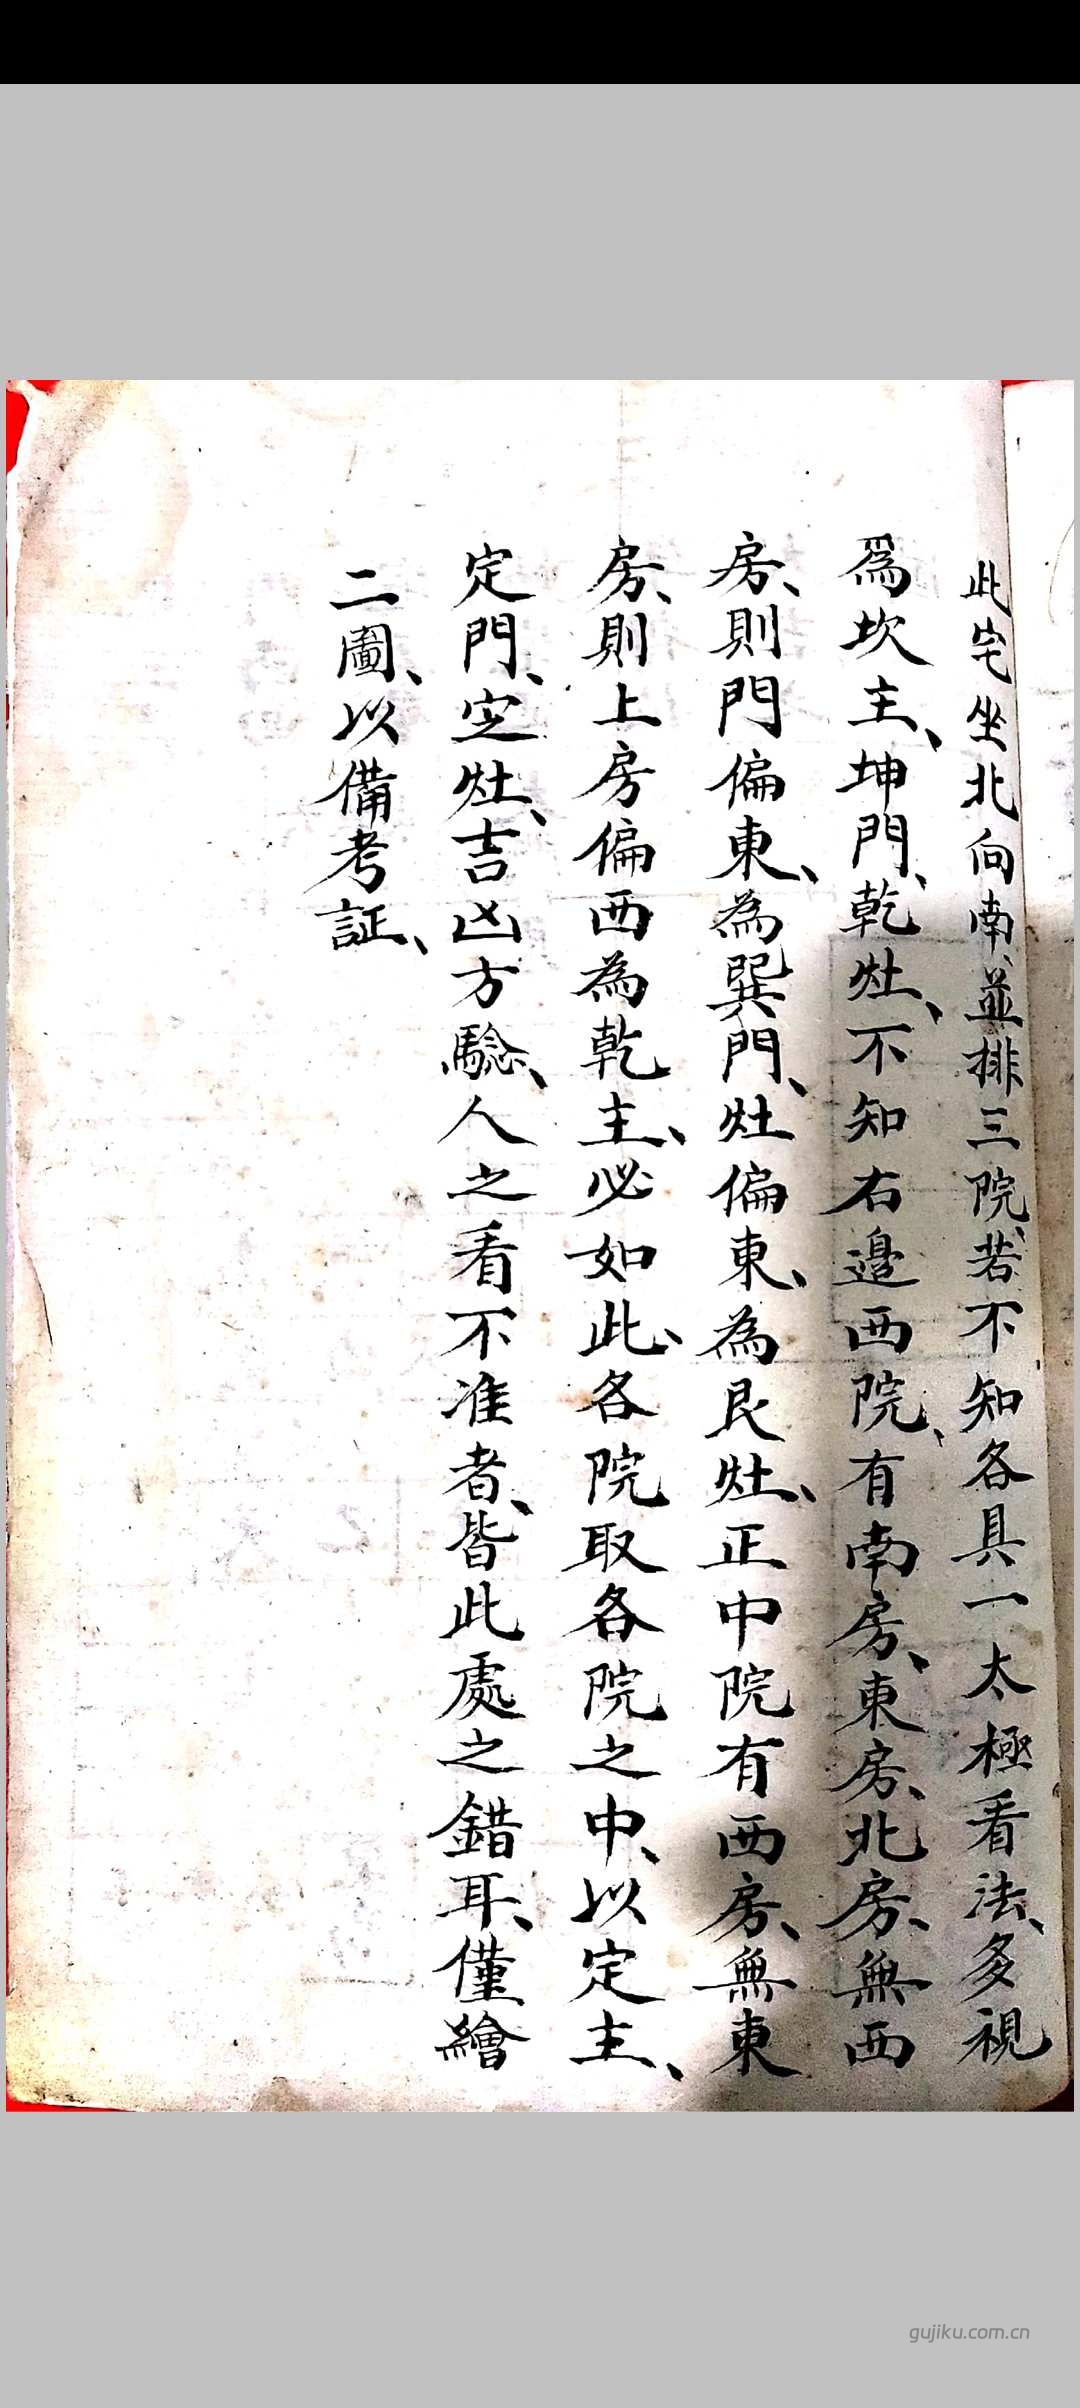 此宅坐北向南、並排三院、若不知各具一太極看法、多視
爲坎主、坤門、乾灶、不知右邊西院、有南房、東房、北房、無西
房、則門偏東、為巽門、灶偏東、為艮灶、正中院有西房、無東
房、則上房偏西為乾主、必如此、各院取各院之中、以定主、
定門、定灶、吉凶方驗、人之看不准者、皆此處之錯耳、僅繪
二圖、以備考証、
gujiku.com.cn